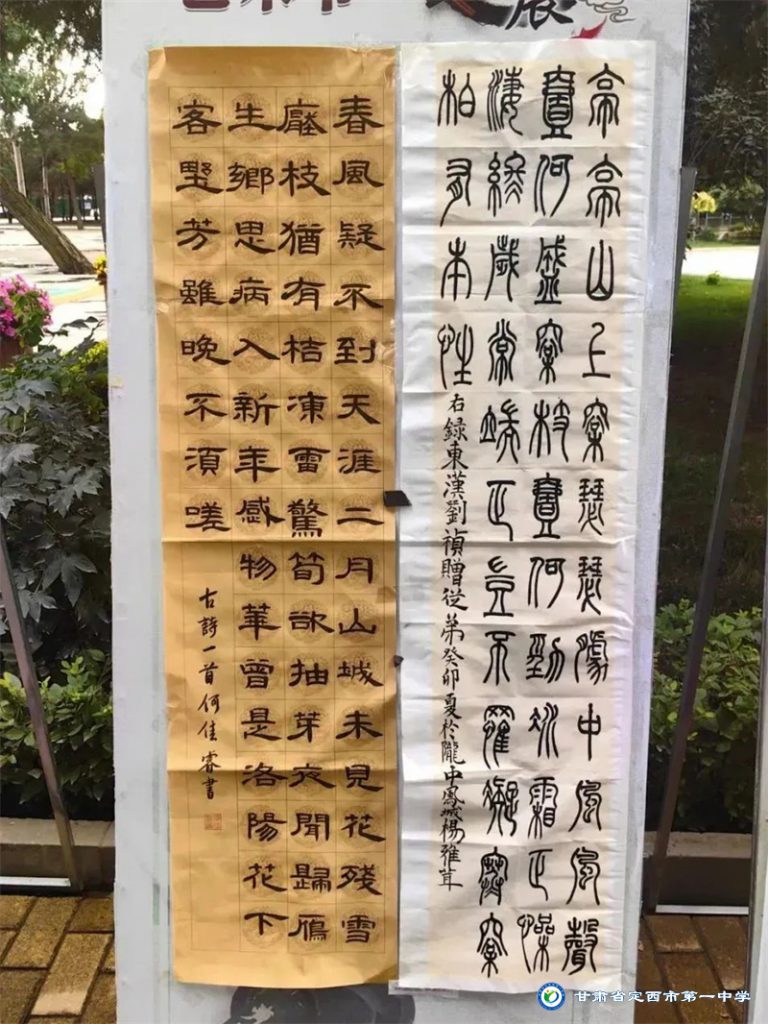 亭亭山上松瑟瑟谷中風風聲
壹何盛松枝壹何勁冰霜正慘
凄終歲常端正豈不罹凝寒松
柏有本性
右録東漢劉禎贈從弟癸卯夏於隴中鳳城楊雅茸
春風疑不到天涯二月山城未見花殘雪
壓枝猶有桔凍雷驚筍欲抽芽夜聞歸鴈
生鄉思病入新年感物華曾是洛陽花下
客野芳雖晚不須嗟
古詩一首何佳睿書
甘肃省定西市第一中学